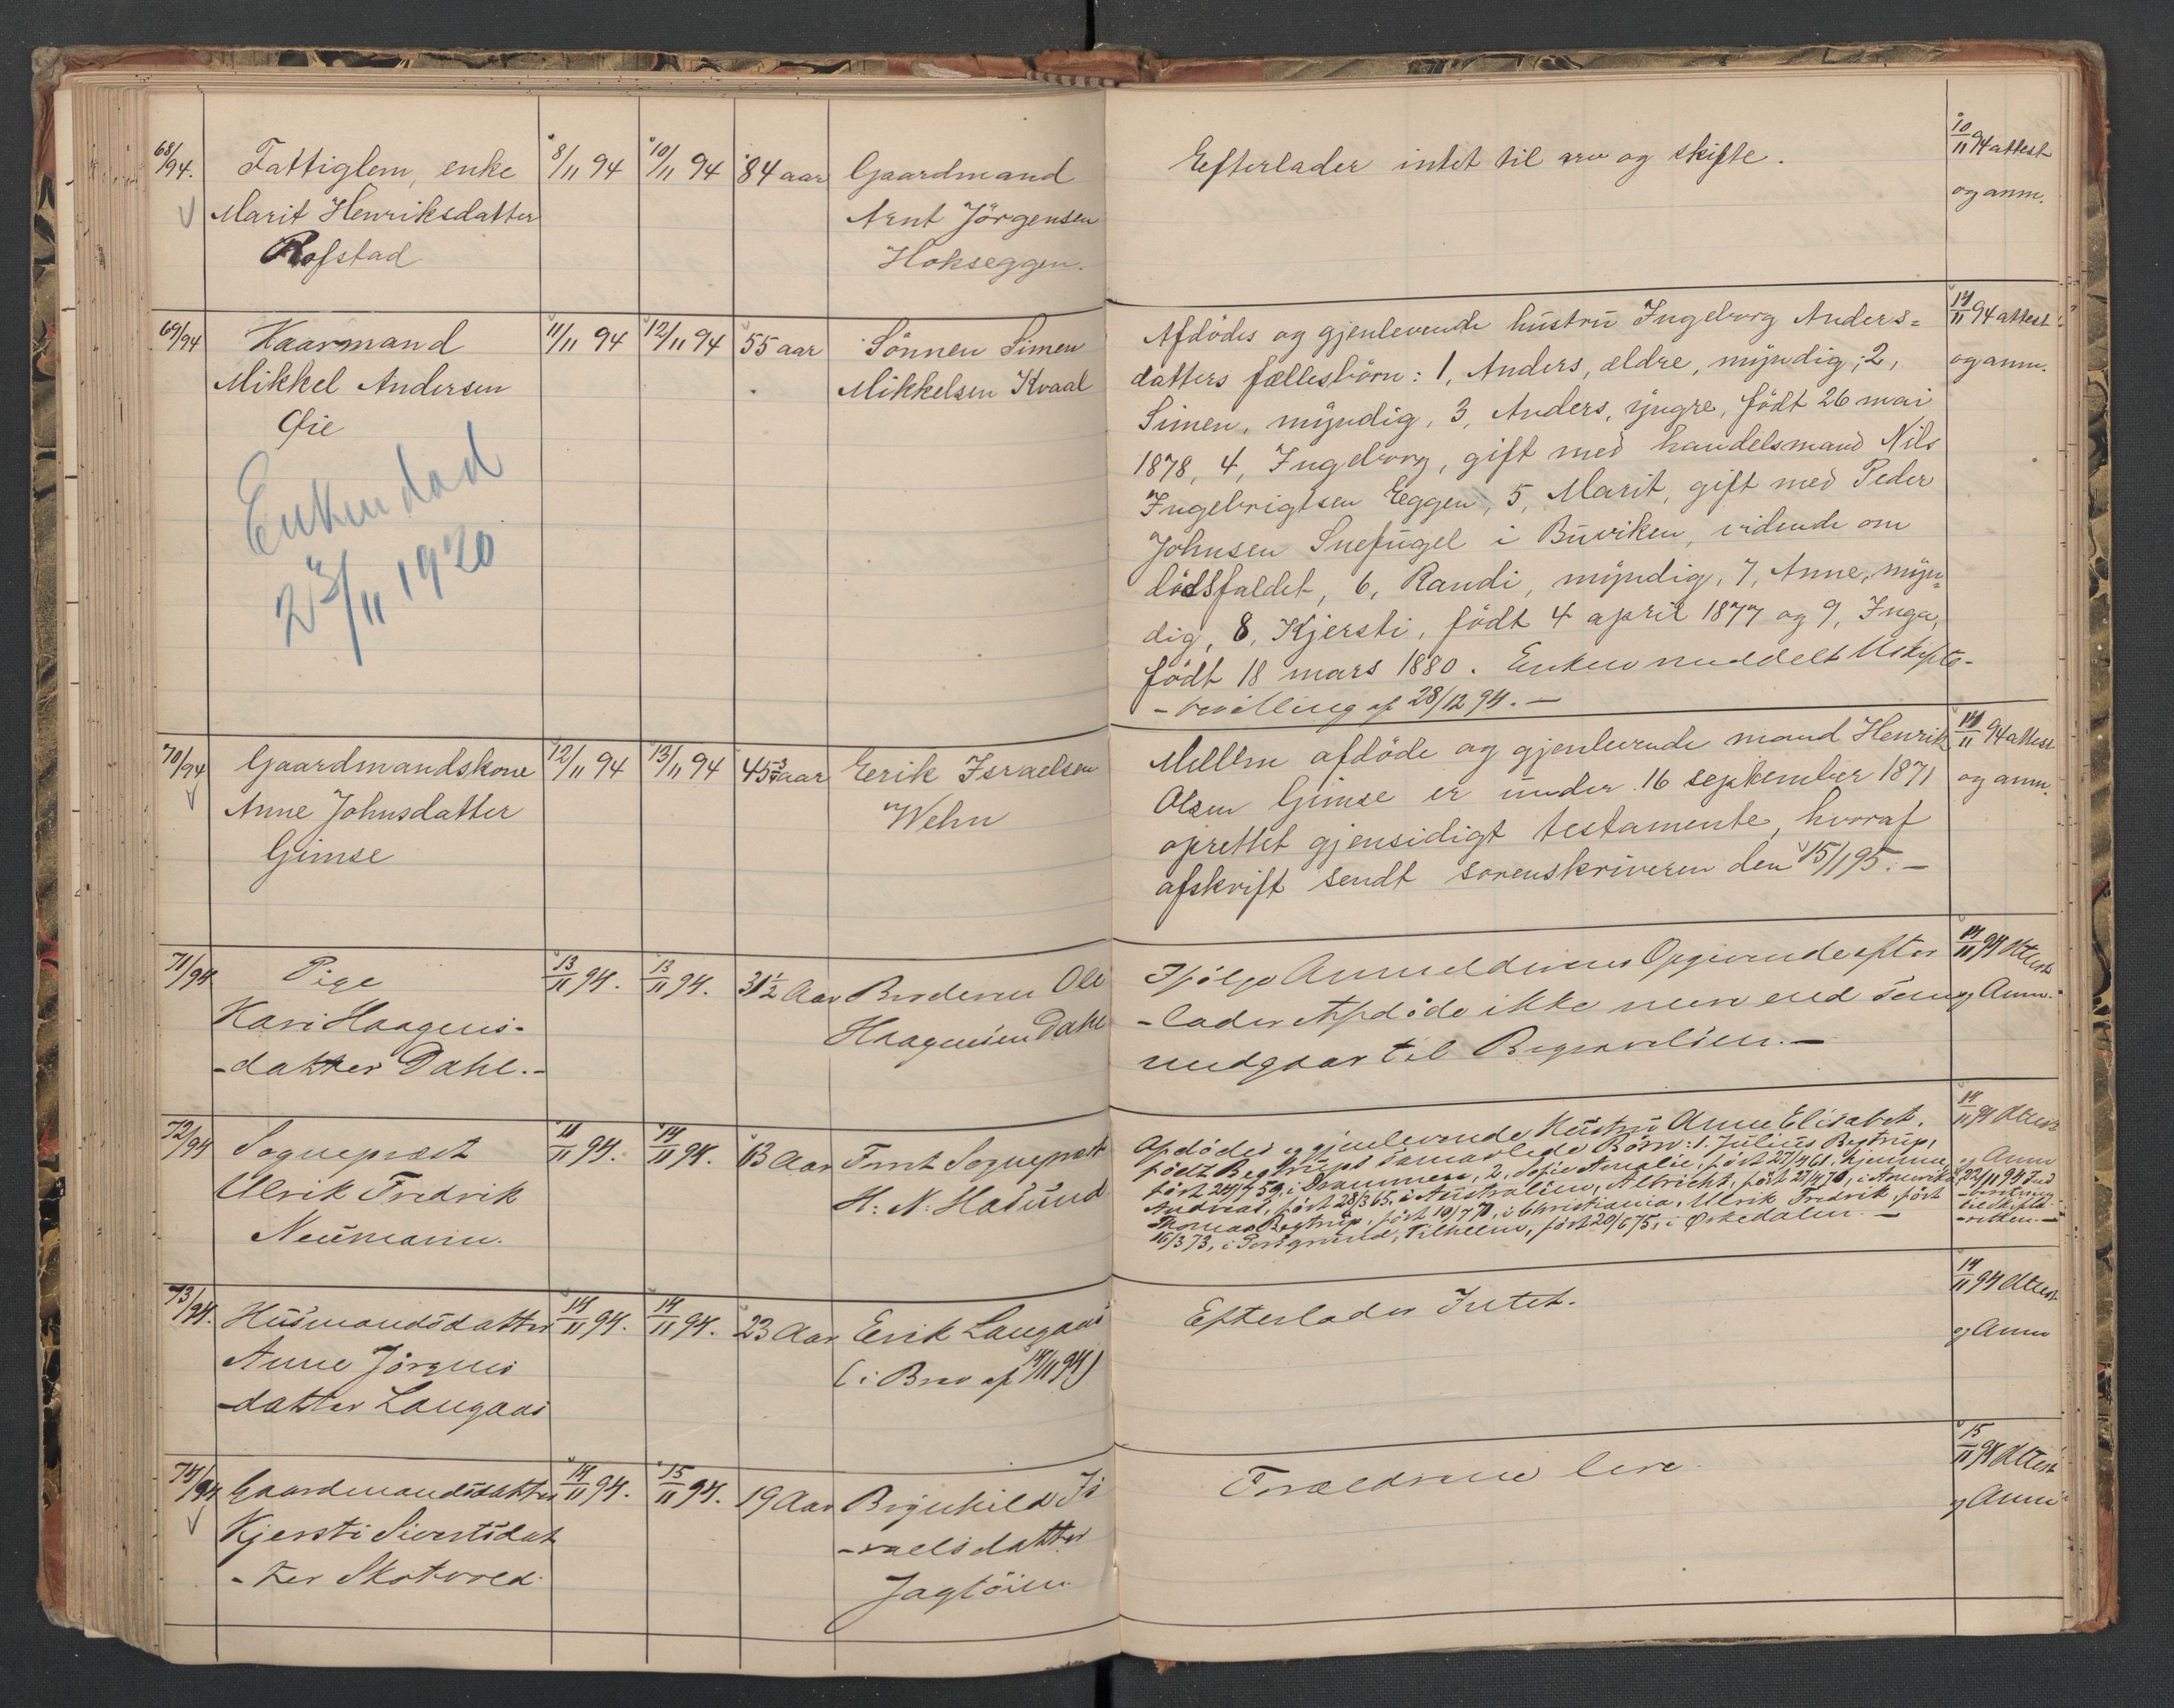 68/94. Fattiglem, enke 8/11 94 10/11 94 84 aar Gaardmand
Marit Henriksdatter Arnt Jörgensen
Rofstad Hokseggen.
Efterlader intet til arv og skifte.
10/11 94 attest
og anm.
69/94 Kaarmand 11/11 94 12/11 94 55 aar Sönnen Simen
Mikkel Andersen Mikkelsen Kvaal
Øie
Enken död
23/11 1920
Afdödes og gjenlevende hustru Ingeborg Anders=
datters fællesbörn: 1, Anders, ældre, myndig, 2,
Simen, myndig, 3, Anders, yngre, födt 26 mai
1878, 4, Ingeborg, gift med handelsmand Nils
Ingebrigtsen Eggen, 5, Marit, gift med Peder
Johnsen Snefugel i Buviken, vidende om
dödsfaldet, 6, Randi, myndig, 7, Anne, myn=
dig, 8, Kjersti, födt 4 april 1877 og 9, Inga,
födt 18 mars 1880. Enken meddelt Uskifte-
-bevilling af 28/12 94. —
14/11 94 attest
og anm.
70/94 Gaardmandskone 12/11 94 13/11 94 45 3/4 aar Eerik Israelsen
Anne Johnsdatter Wehn
Gimse
Mellem afdöde og gjenlevende mand Henrik
Olsen Gimse er under 16 september 1871
oprettet gjensidigt testamente, hvoraf
afskrift sendt sorenskriveren den 15/1 95. —
14/11 94 attest
og anm.
71/94 Pige 13/11 94. 13/11 94. 31 1/2 Aar Broderen Ole
Kari Haagens- Haagensen Dahl
-datter Dahl.-
Ifölge Anmelderens Opgivende efter
-lader Afdöde ikke mere end som
medgaar til Begravelsen. —
14/11 94 Attest
og Anm.
72/94 Sogneprest 11/11 94. 14/11 94. 63 Aar Fmt Sogneprest
Ulrik Fredrik H. N. Hasund
Neumann.
Afdödes og gjenlevende Hustru Anne Elisabet,
födt Begtrups samavlede Börn: 1. Julius Begtrup,
födt 24/7 59, i Drammen, 2, Sofie Amalie, födt 27/4 61, hjemme,
Andreas, födt 28/3 65, i Australien, Albricht, födt 21/4 70, i Amerika,
Thomas Begtrup, födt 10/7 70, i Christiania, Ulrik Fredrik, födt
16/3 73, i Porsgrund, Vilhelm, födt 20/6 75, i Orkedalen. —
14/11 94 Attest
og Anm
22/11 94 Ind
-beretning
til Skifte
-retten. —
73/94. Husmandsdatter 14/11 94. 14/11 94. 23 Aar Erik Langaas
Anne Jörgens (i Brev af 14/11 94)
-datter Langaas
Efterlader Intet.
14/11 94 Attest
og Anm
74/94 Gaardmandsdatter 14/11 94. 15/11 94. 19 Aar Brynhild Is
Kjersti Sivertsdat -raelsdatter
-ter Skotvold Jagtöien.
Forældrene leve.
15/11 94 Attest
og Anm